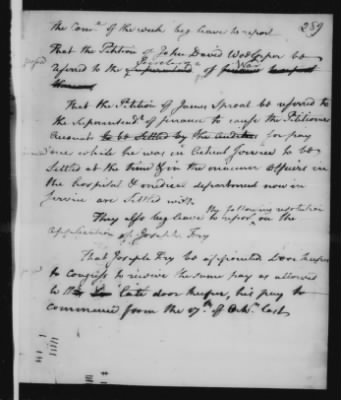 289
the Com.ee of the week beg leave to report
That the Petition of John David Woelpper be
referred to the Secretary of War
That the Petition of James Sproat be referred to
the Superintend.t of finance to cause the Petitioners
Account to be settled by the auditor for pay
due while he was in actual Service to be
Settled at the time & in the manner Officers in
the hospital & medical department now in
Service are Settled with
They also beg leave to report the following resolution on the
application of Joseph Fry
That Joseph Fry be appointed Door keeper
to Congress to receive the same pay as allowed
to the late door keeper, his pay to
commence from the 17th of Last